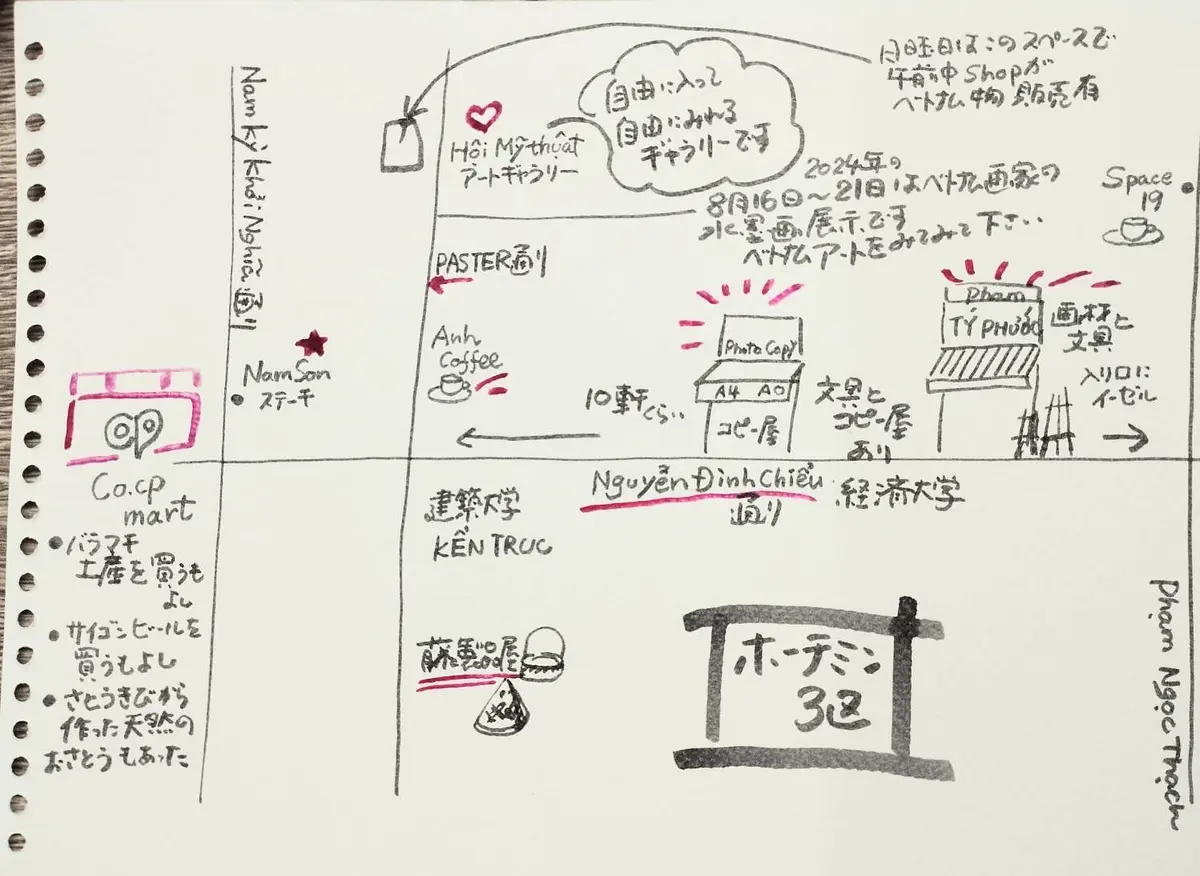 月曜日はこのスペースで
午前中shopが
ベトナム物販売有
自由に入って
自由にみれる
ギャラリーです
Hội Mỹ thuật
アートギャラリー
2024年の
8月16日〜21日はベトナム画家の
水墨画展示です
ベトナムアートをみてみて下さい…
Space
19
Nam kỳ khởi Nghĩa 通り
PASTER通り
Anh
Coffee
NamSon
ステーキ
10軒くらい
Photo Copy
A4 A0
コピー屋
文具と
コピー屋
あり
Pham
TÝ PHƯỚC
画材と
文具
入り口に
イーゼル
op
Co.op
mart
バラマキ
土産を買うも
よし
サイゴンビールを
買うもよし
さとうきびから
作った天然の
おさとうもあった
建築大学
KỀN TRUC
Nguyễn Đình Chiểu
通り
経済大学
藤製品屋
ホーチミン
3区
Phạm Ngọc Thạch